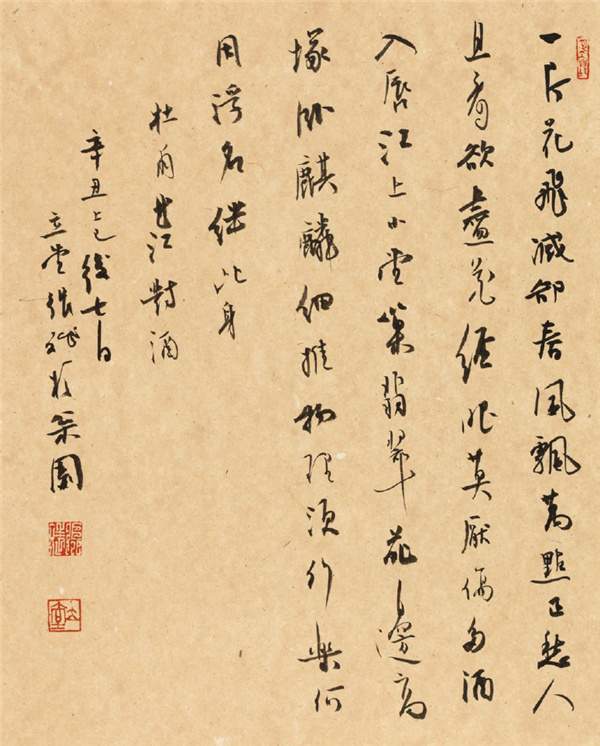 一片花飛減却春風飄萬點正愁人
且看欲盡花經眼莫厭傷多酒
入唇江上小堂巢翡翠花邊高
塚卧麒麟細推物理須行樂何
用浮名絆此身
杜甫曲江對酒
辛丑上巳後七日
立堂張於梁園